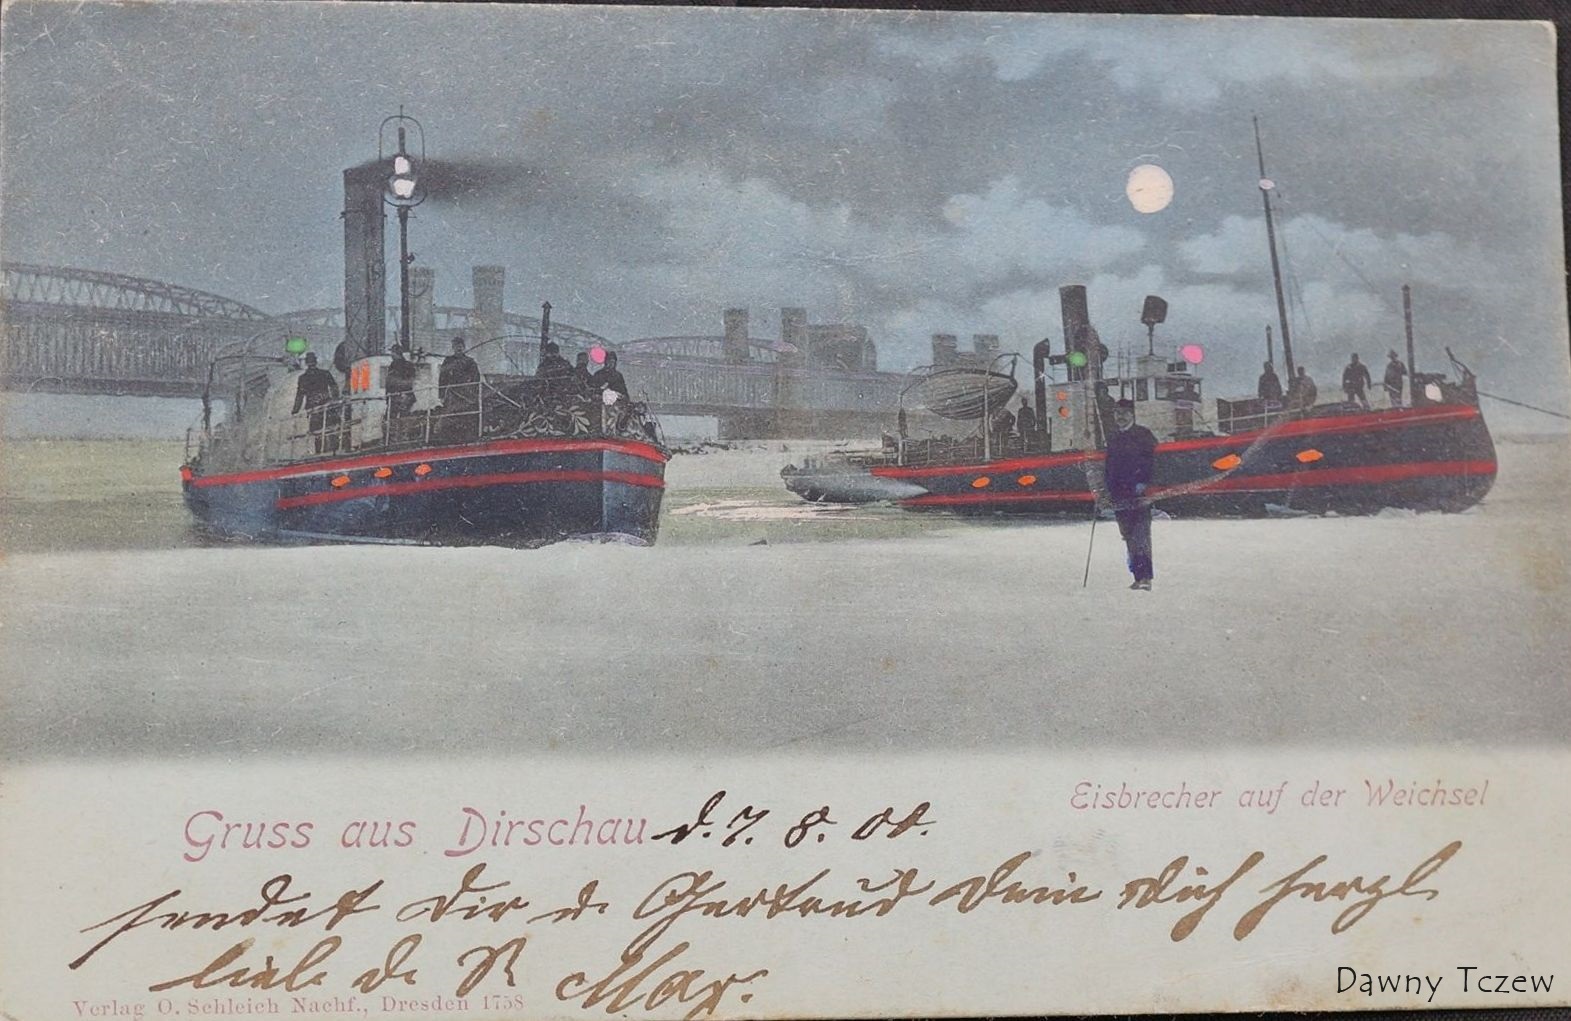 Eisbrecher auf der Weichsel
Gruss aus Dirschau d. 7. 8. 00.
sendet Dir u. Gertrud Dein Dich herzl.
lieb. Max.
Verlag O. Schleich Nachf., Dresden 1758
Dawny Tczew